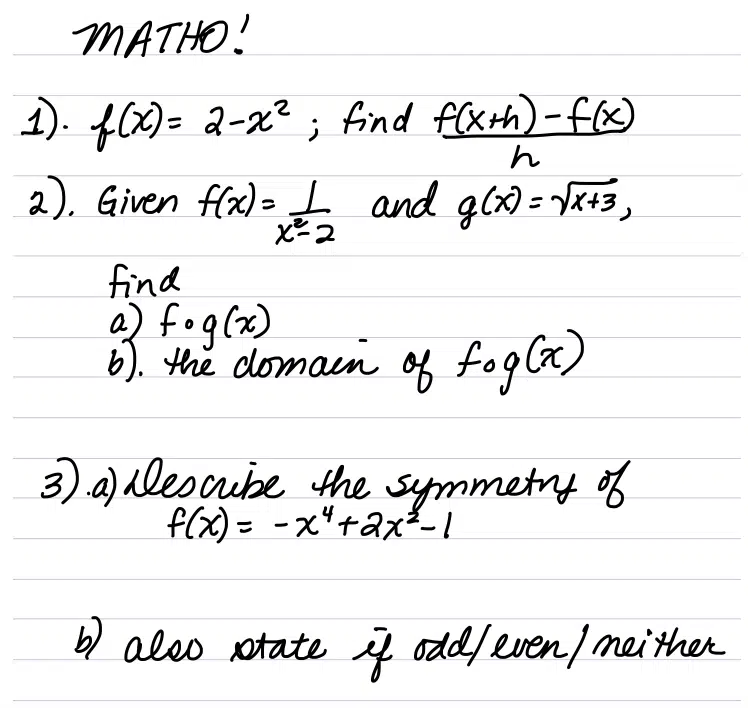 MATHO!
1). f(x) = 2-x² ; find f(x+h)-f(x)
h
2). Given f(x) = 1/(x²-2) and g(x) = √(x+3),
find
a) f∘g(x)
b). the domain of f∘g(x)
3).a) Describe the symmetry of
f(x) = -x⁴+2x²-1
b) also state if odd/even/neither